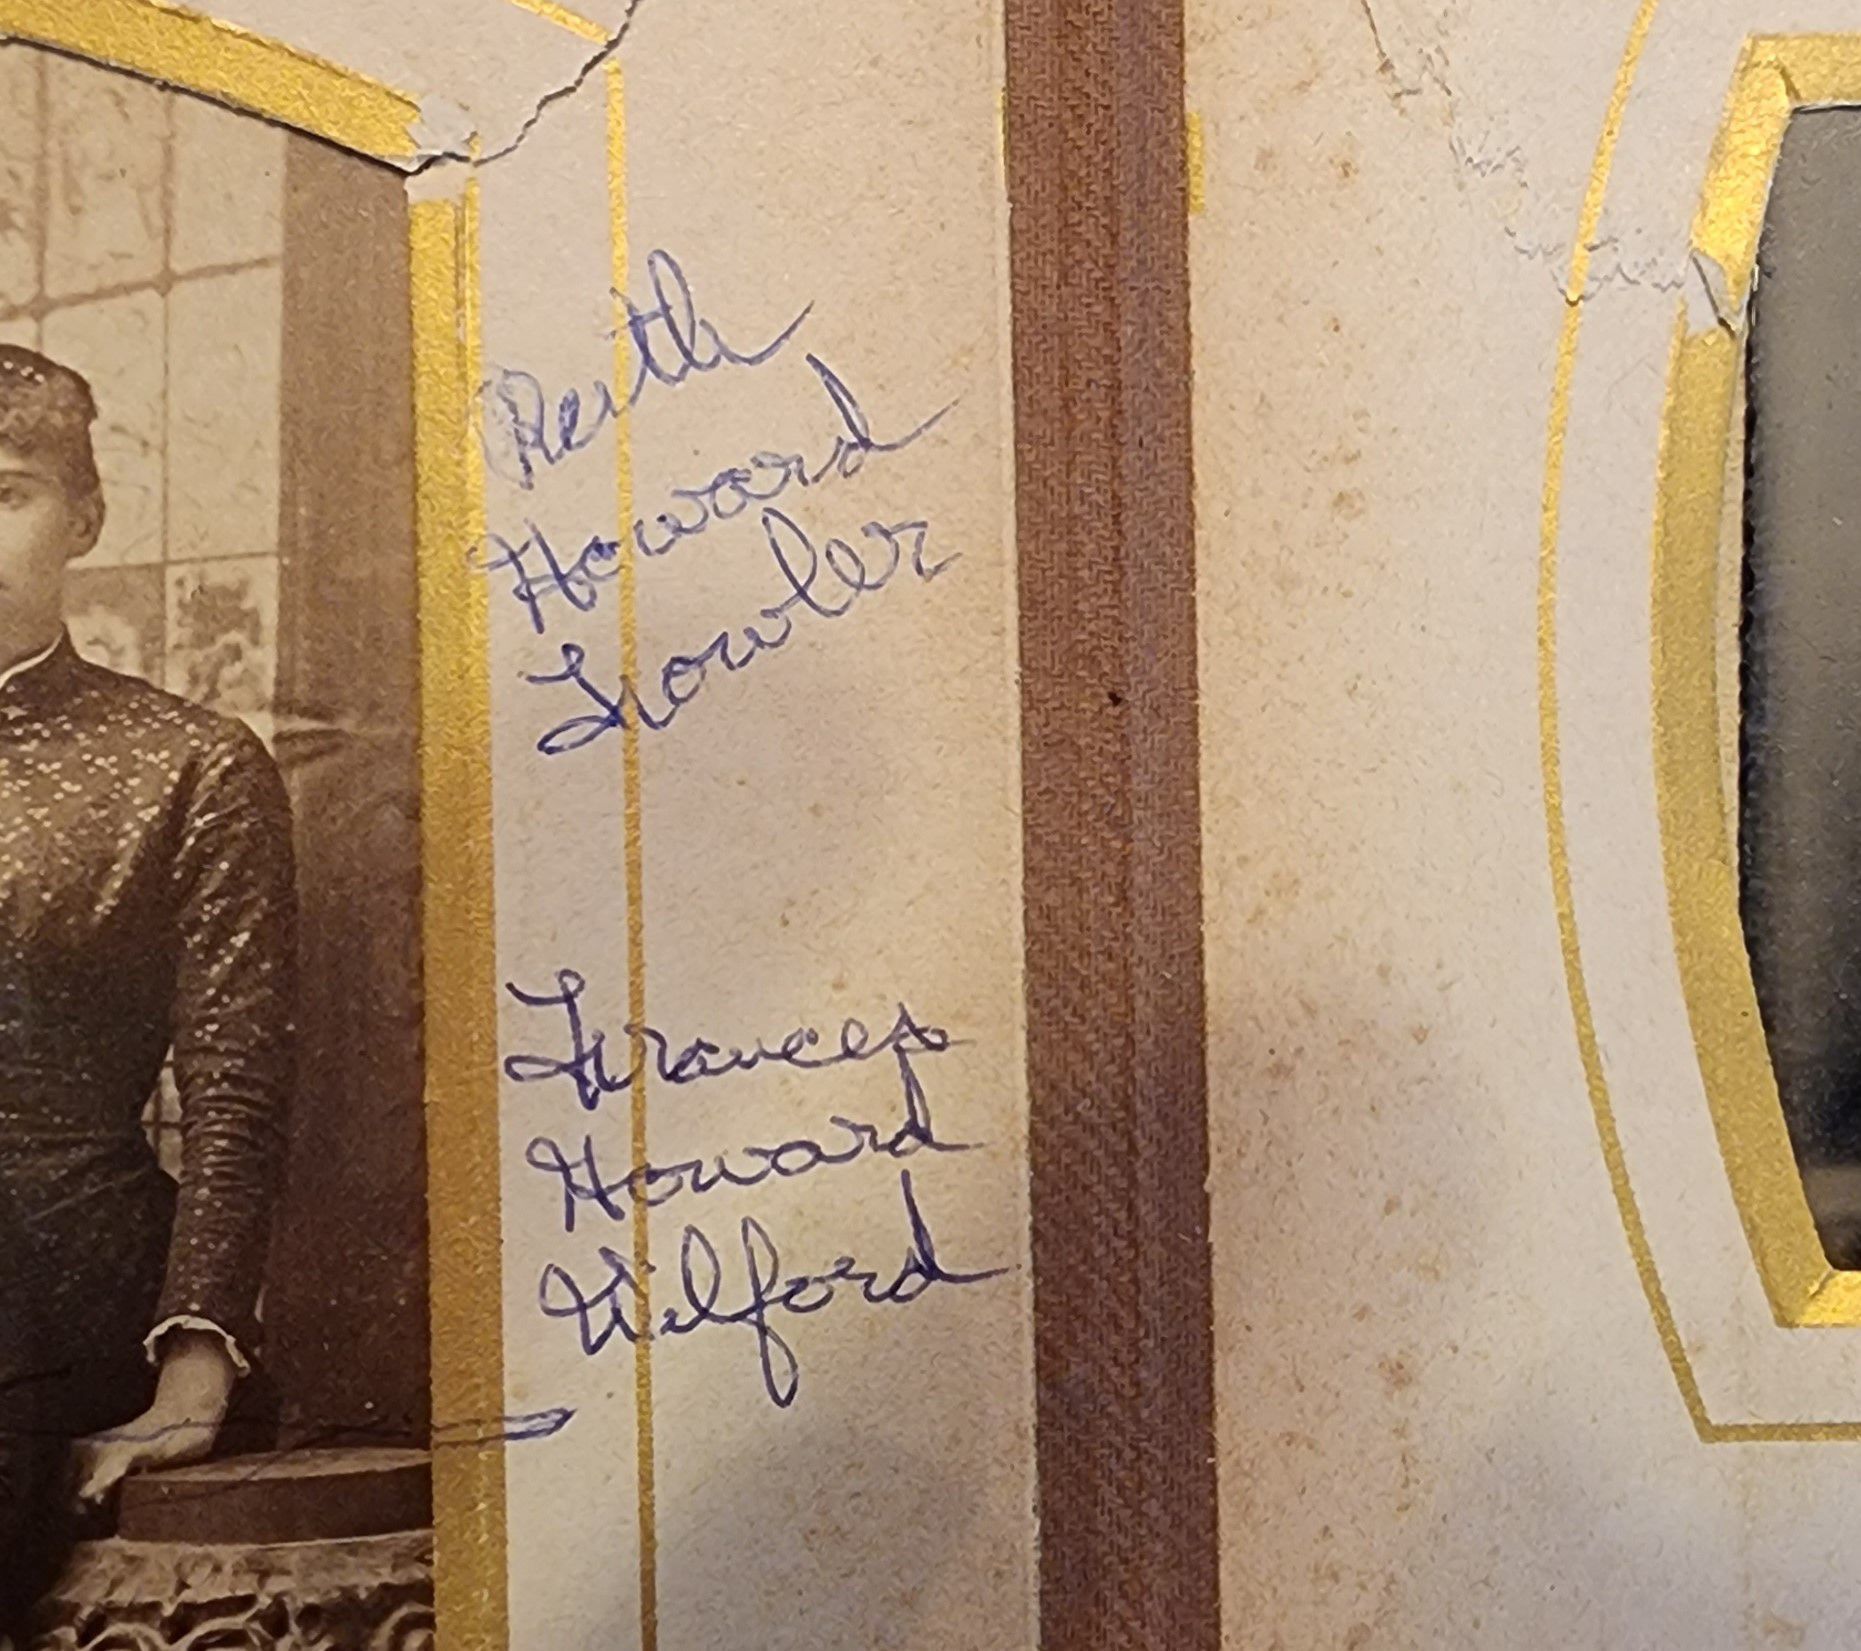 Ruth
Howard
Fowler
Frances
Howard
Wilford